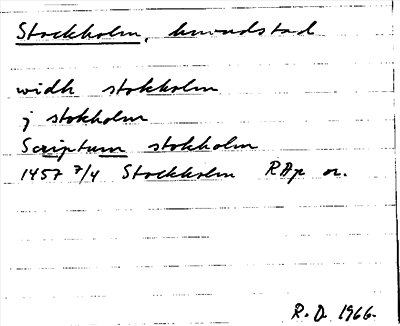 Stockholm, huvudstad
widh stokholm
j stokholm
Scriptum stokholm
1457 7/4 Stockholm RAp or.
R.D. 1966.